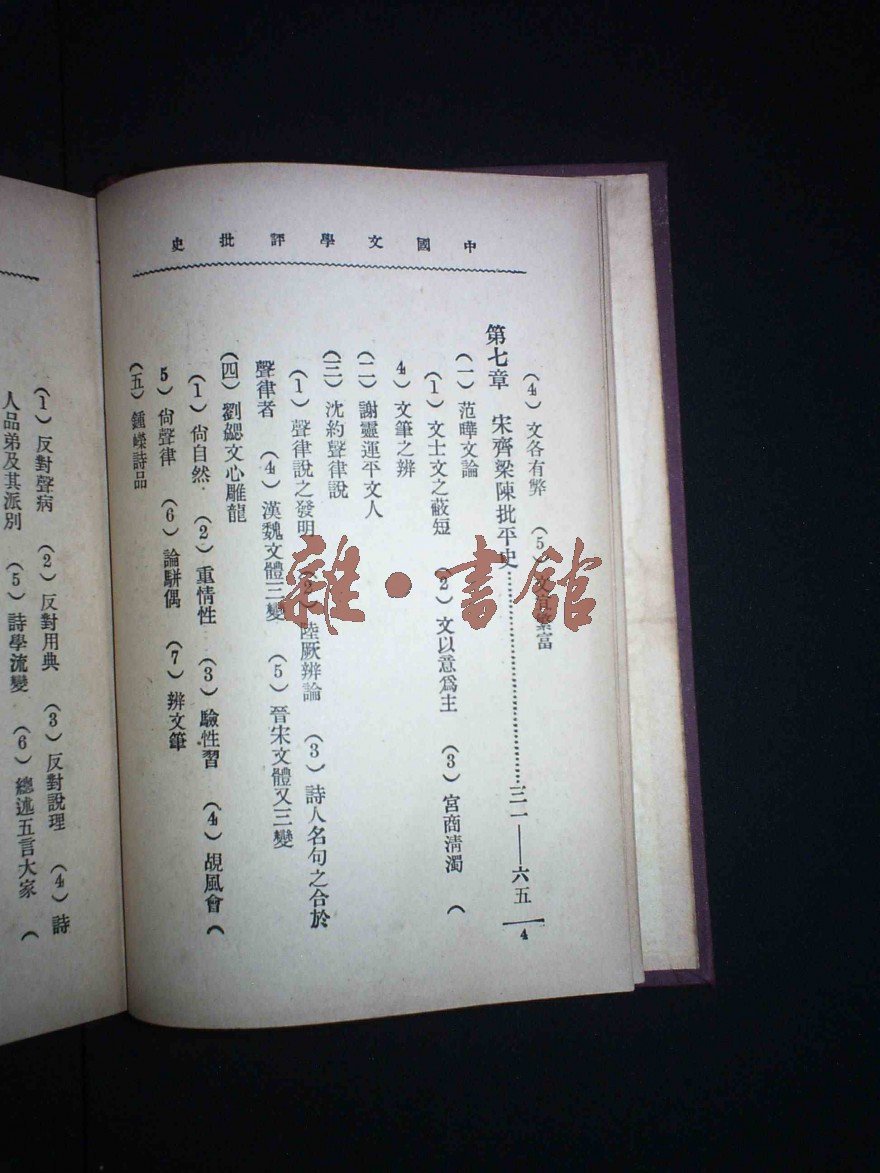 中國文學評批史
(4) 文各有弊 (5) 文宜繁富
第七章 宋齊梁陳批平史……三一——六五
(一) 范曄文論
(1) 文士文之蔽短 (2) 文以意爲主 (3) 宮商淸濁 (
4) 文筆之辨
(二) 謝靈運平文人
(三) 沈約聲律說
(1) 聲律說之發明 (2) 陸厥辨論 (3) 詩人名句之合於
聲律者 (4) 漢魏文體三變 (5) 晉宋文體又三變
(四) 劉勰文心雕龍
(1) 尙自然 (2) 重情性 (3) 驗性習 (4) 覘風會 (
5) 尙聲律 (6) 論駢偶 (7) 辨文筆
(五) 鍾嶸詩品
4
(1) 反對聲病 (2) 反對用典 (3) 反對說理 (4) 詩
人品弟及其派別 (5) 詩學流變 (6) 總述五言大家 (
雜·書館